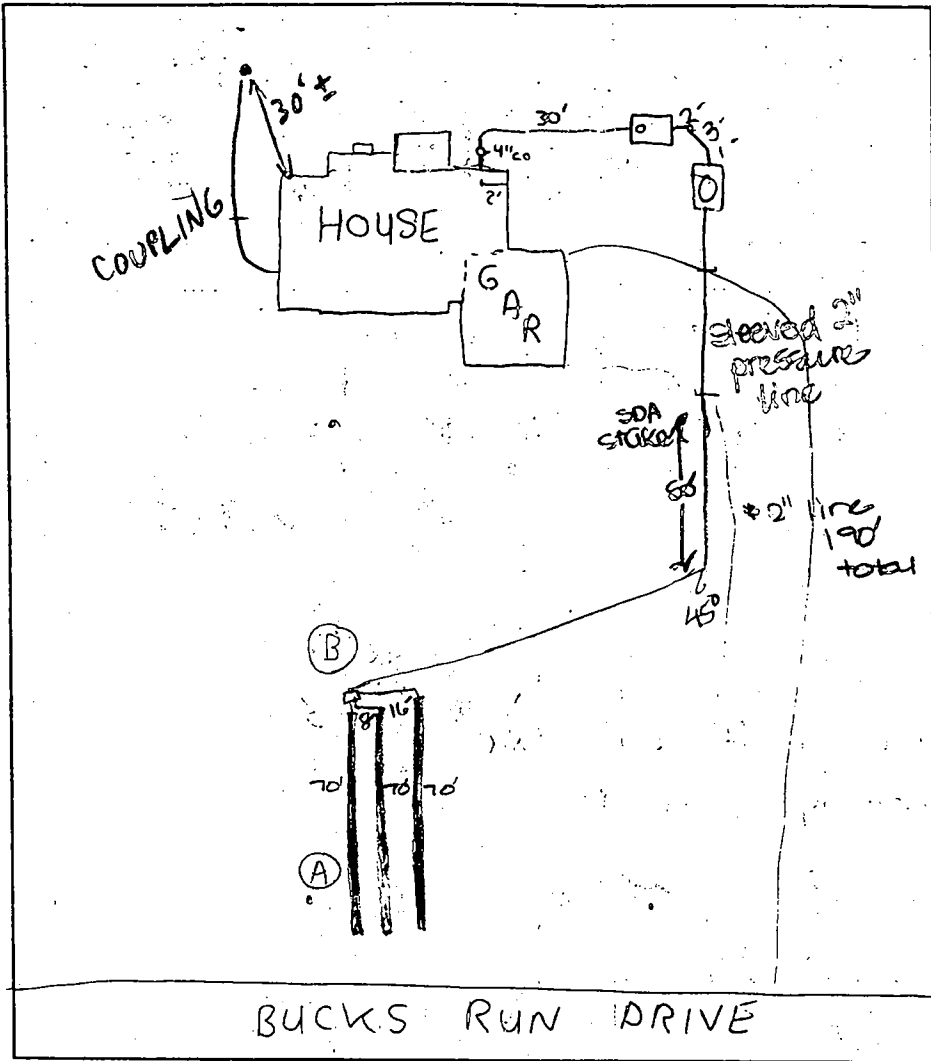 30' ±
30'
2'
3'
1'
4" co
2'
COUPLING
HOUSE
GAR
sleeved 2"
pressure
line
SDA
stake
2" line
190'
total
45°
B
8'
16'
70'
70'
70'
A
BUCKS RUN DRIVE